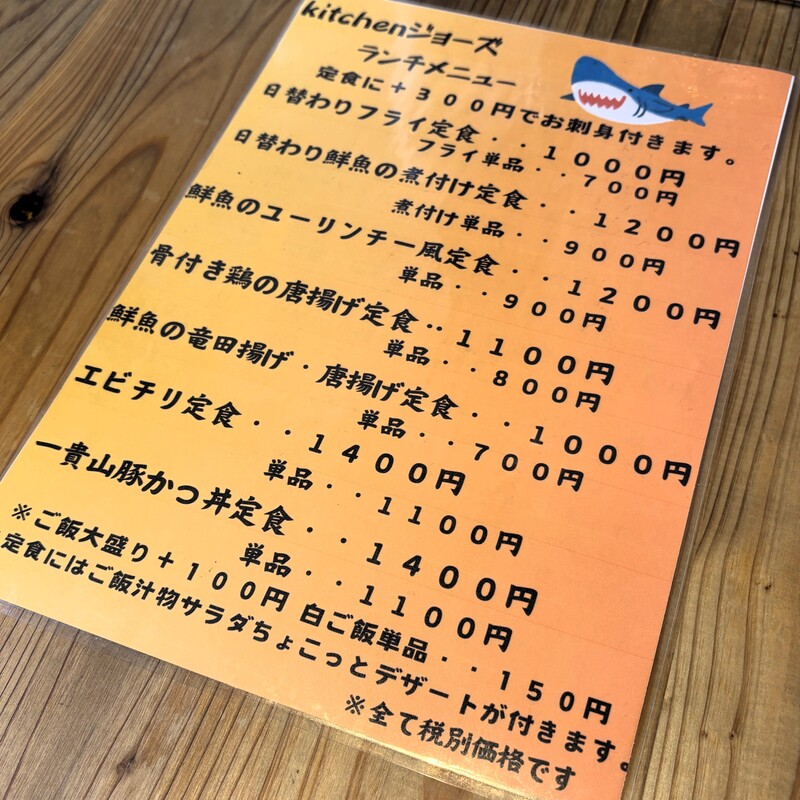 kitchenジョーズ
ランチメニュー
定食に+300円でお刺身付きます。
日替わりフライ定食..1000円
フライ単品..700円
日替わり鮮魚の煮付け定食..1200円
煮付け単品..900円
鮮魚のユーリンチー風定食..1200円
単品..900円
骨付き鶏の唐揚げ定食..1100円
単品..800円
鮮魚の竜田揚げ・唐揚げ定食..1000円
単品..700円
エビチリ定食..1400円
単品..1100円
一貴山豚かつ丼定食..1400円
単品..1100円
※ご飯大盛り+100円 白ご飯単品..150円
定食にはご飯汁物サラダちょこっとデザートが付きます。
※全て税別価格です